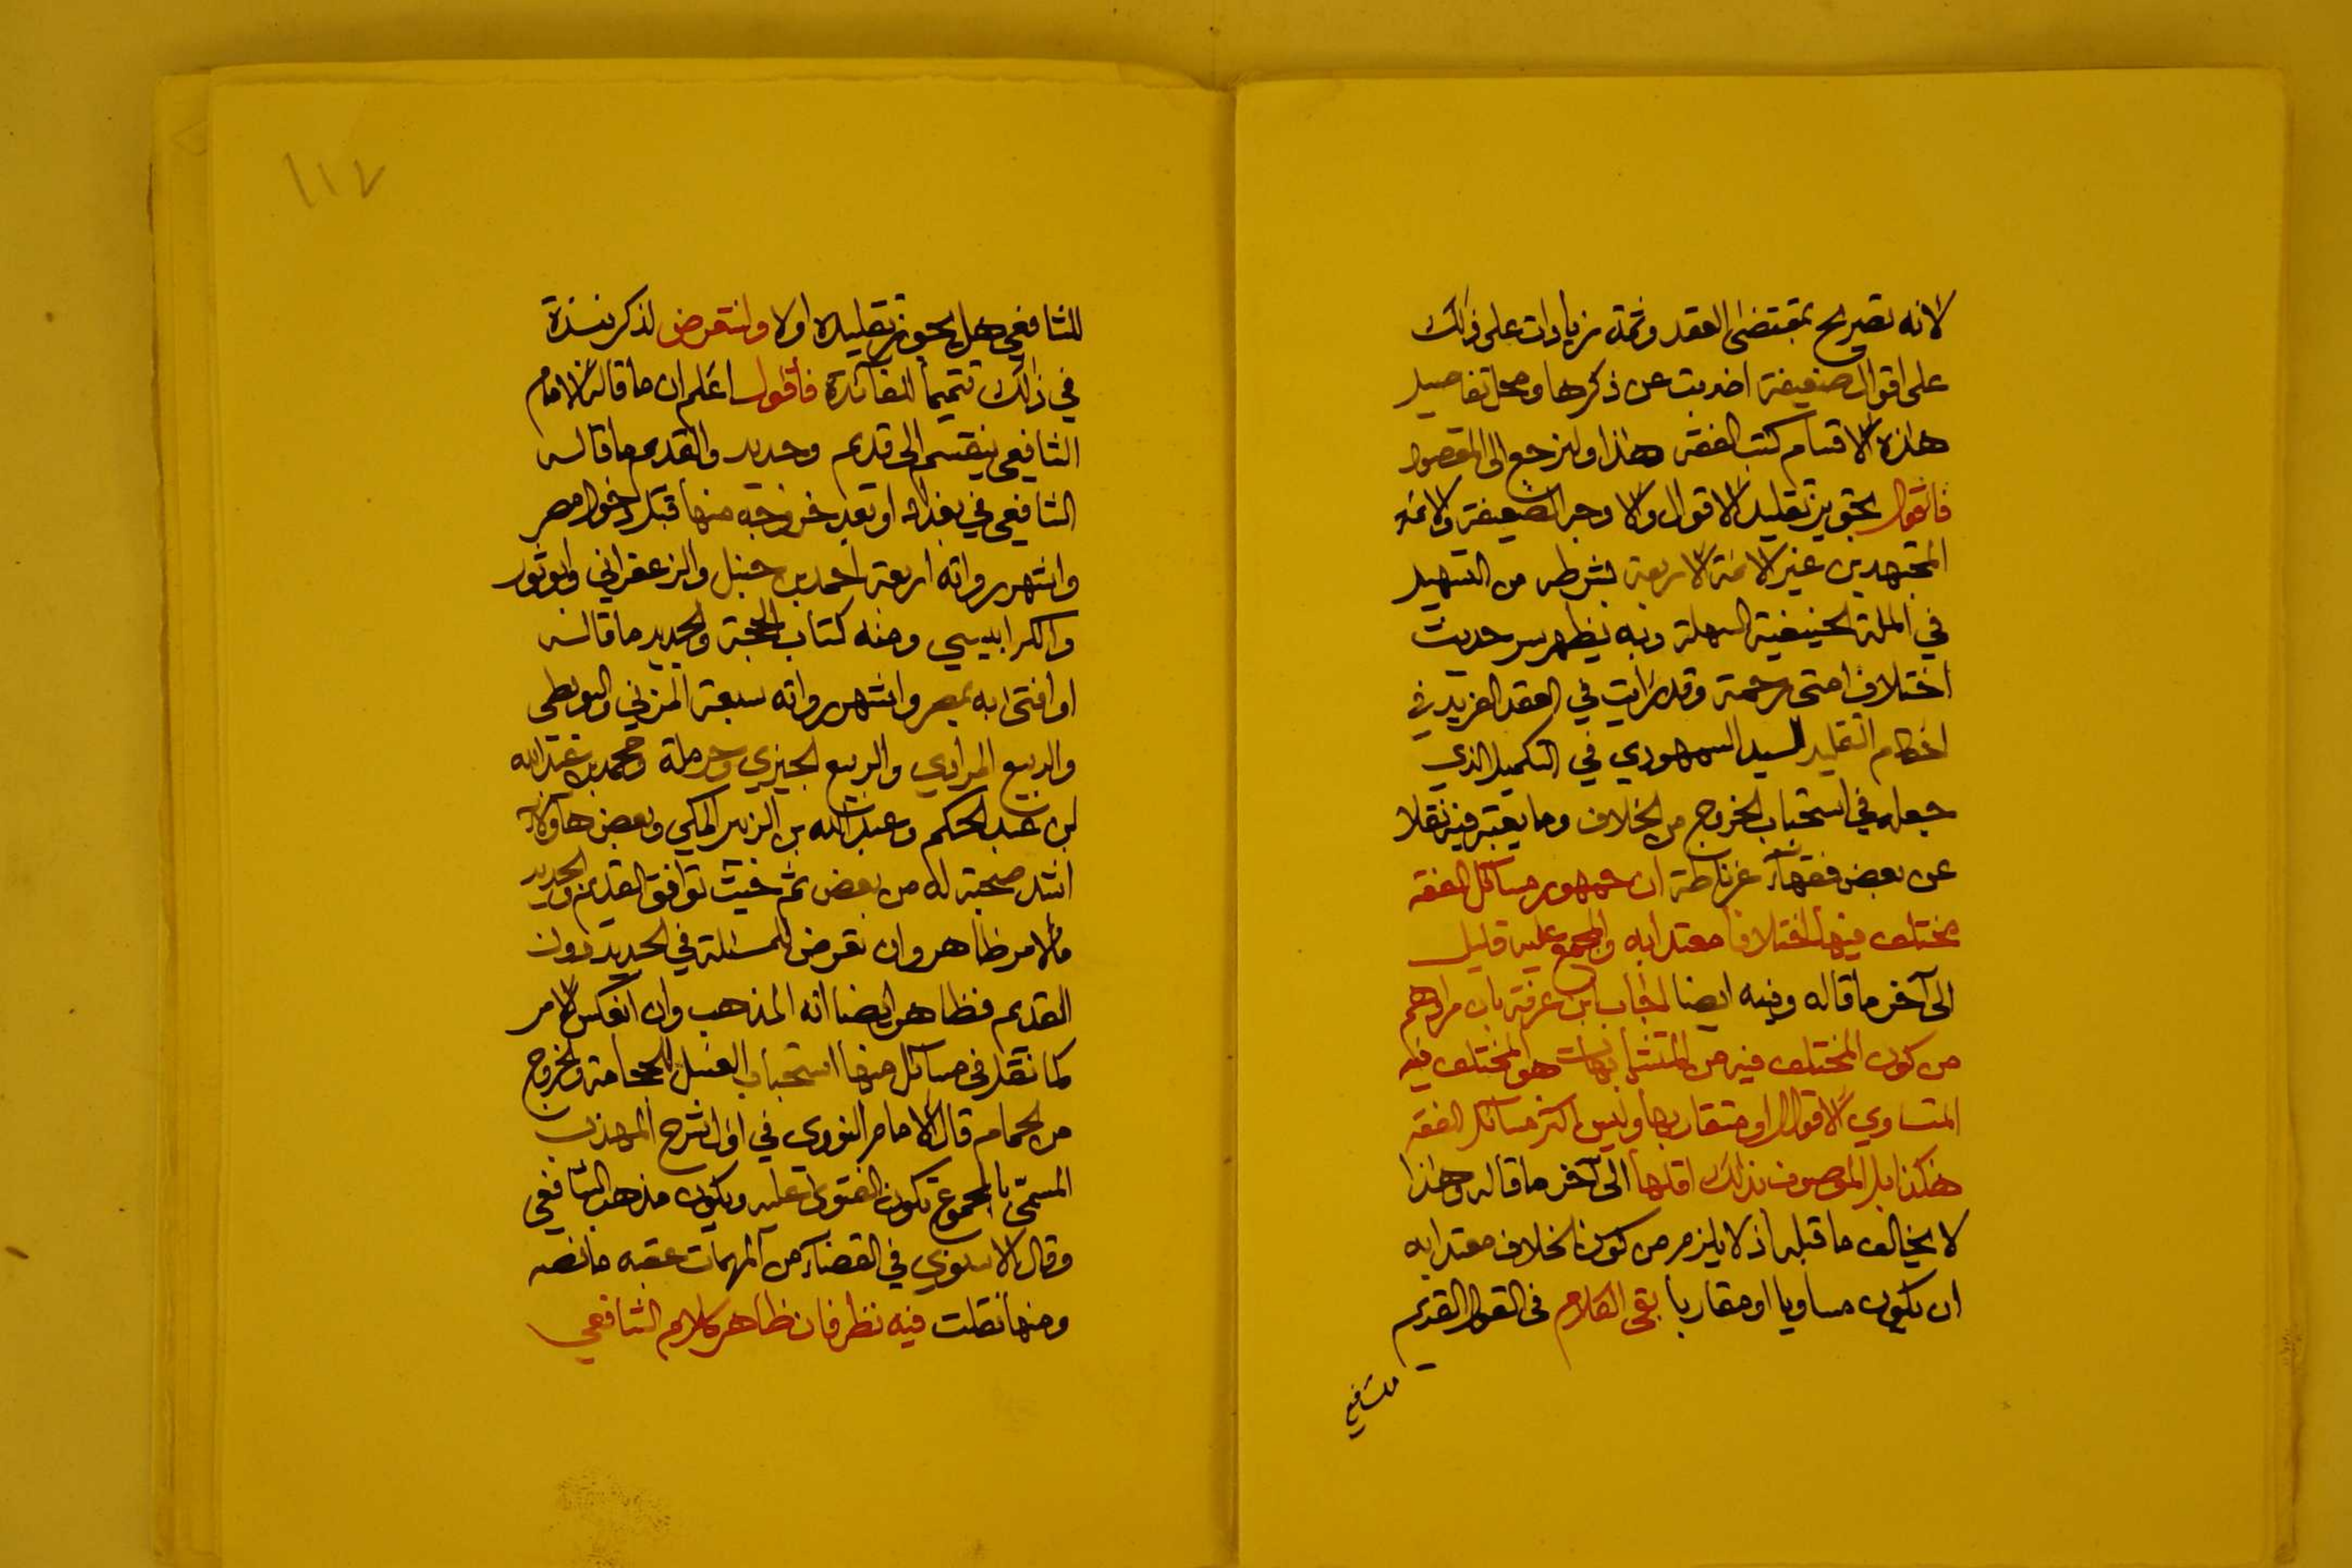 لانه تصريح بمقتضى العقد وثمة زيادات على ذلك
على اقوال ضعيفة اضربت عن ذكرها ومحل تفاصيل
هذه الاقسام كتب الفقه هذا ولنرجع الى المقصود
فانقول بتجويز تقليد الاقوال والاوجه الضعيفة والائمة
المجتهدين غير الائمة الاربعة بشرطه من التسهيل
في الملة الحنيفية السهلة وبه يظهر سر حديث
اختلاف امتى رحمة وقد رايت في العقد الفريد في
احكام التقليد للسيد السمهودي في التكميل الذي
جعله في استحباب الخروج من الخلاف وما يعتبر فيه نقلا
عن بعض فقهاء غرناطة ان جمهور مسائل الفقه
مختلف فيها اختلافا معتدا به والمجمع عليه قليل
الى آخر ما قاله وفيه ايضا اجاب ابن عرفة بان مرادهم
من كون المختلف فيه من المتشابهات هو المختلف فيه
المتساوي الاقوال او متقاربها وليس اكثر مسائل الفقه
هكذا بل الموصوف بذلك اقلها الى آخر ما قاله وهذا
لا يخالف ما قبله اذ لا يلزم من كون الخلاف معتدا به
ان يكون مساويا او مقاربا بقى الكلام فى القول القديم
للشافعي
١١٧
للشافعي هل يجوز تقليده اولا ولنتعرض لذكر نبذة
في ذلك تتميما للفائدة فأقول اعلم ان ما قاله الامام
الشافعى ينقسم الى قديم وجديد والقديم ما قاله
الشافعى في بغداد او بعد خروجه منها قبل دخول مصر
واشهر رواته اربعة احمد بن حنبل والزعفراني وابو ثور
والكرابيسي ومنه كتاب الحجة والجديد ما قاله
او افتى به بمصر واشهر رواته سبعة المزني والبويطي
والربيع المرادي والربيع الجيزي وحرملة ومحمد بن عبد الله
بن عبد الحكم وعبد الله بن الزبير المكي وبعض هاؤلاء
اشد صحبة له من بعض ثم حيث توافق القديم والجديد
فالامر ظاهر وان تعرض للمسئلة في الجديد دون
القديم فظاهر ايضا انه المذهب وان انعكس الامر
كما نقل فى مسائل منها استحباب الغسل للحجامة والخروج
من الحمام قال الامام النووي في اول شرح المهذب
المسمّى بالمجموع تكون الفتوى عليه ويكون مذهب الشافعي
وقال الاسنوي في القضاء من المهمات عقبه ما نصه
ومنها نقلت فيه نظر فان ظاهر كلام الشافعي